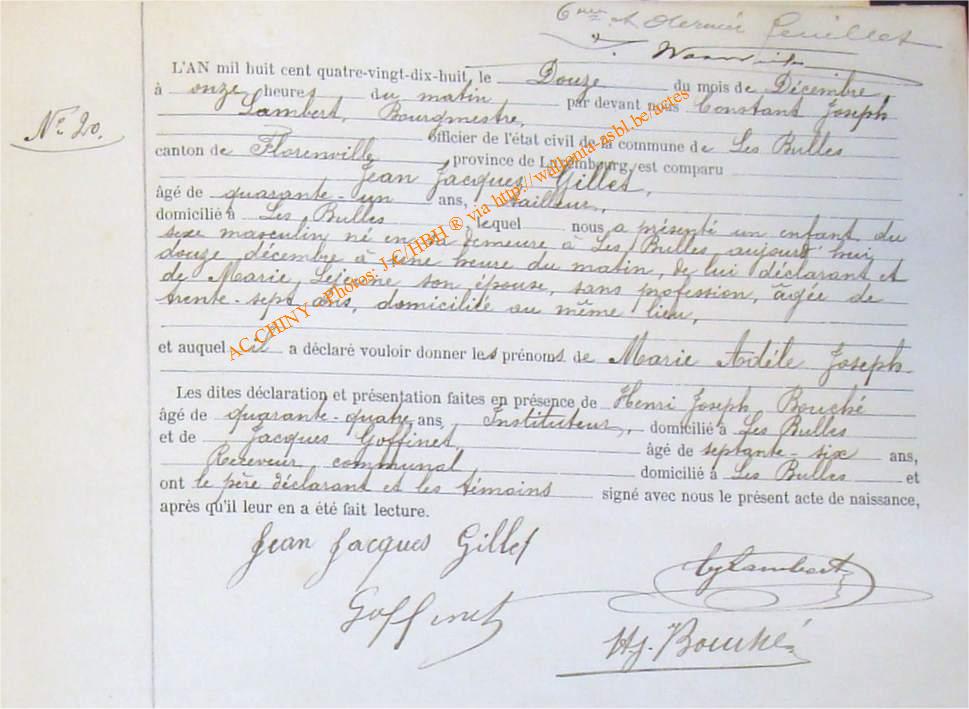 6me et dernier feuillet
No 20.
L'AN mil huit cent quatre-vingt-dix-huit, le Douze du mois de Décembre,
à onze heures du matin par devant nous Constant Joseph
Lambert, Bourgmestre,
officier de l'état civil de la commune de Les Bulles
canton de Florenville, province de Luxembourg, est comparu
Jean Jacques Gillet,
âgé de quarante-un ans, tailleur,
domicilié à Les Bulles, lequel nous a présenté un enfant du
sexe masculin né en sa demeure à Les Bulles aujourd'hui
douze décembre à une heure du matin, de lui déclarant et
de Marie Lejeune son épouse, sans profession, âgée de
trente-sept ans, domiciliée au même lieu,
et auquel il a déclaré vouloir donner les prénoms de Marie Adèle Joseph
Les dites déclaration et présentation faites en présence de Henri Joseph Bouché
âgé de quarante-quatre ans, Instituteur, domicilié à Les Bulles
et de Jacques Goffinet, âgé de septante-six ans,
Receveur communal domicilié à Les Bulles et
ont le père déclarant et les témoins signé avec nous le présent acte de naissance,
après qu'il leur en a été fait lecture.
Jean Jacques Gillet
CjLambert
Goffinet
Hj. Bouché
AC CHINY - Photos: J-C/HBH ® via http://wallonia-asbl.be/actes